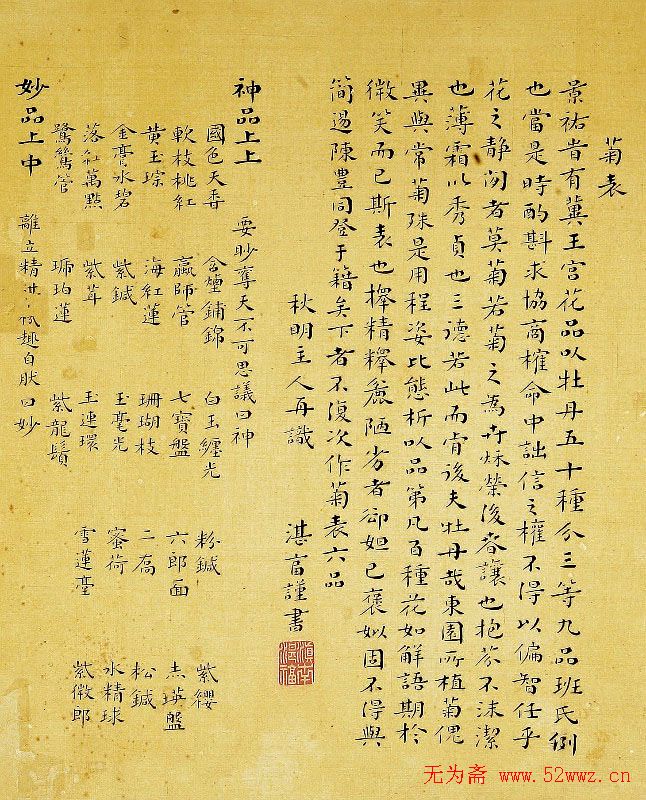 菊表
景祐昔有冀王宮花品以牡丹五十種分三等九品班氏例
也當是時酌斟求協商榷命中詘信之權不得以偏智任乎
花之靜閒者莫菊若菊之為卉秌榮後春讓也抱芬不沫潔
也薄霜以秀貞也三德若此而肯後夫牡丹哉東園所植菊傀
異與常菊殊是用程姿比態析以品第凡百種花如解語期於
微笑而已斯表也擇精釋麄陋劣者卻妲已褒姒固不得與
簡遏陳豊同登于籍矣下者不復次作菊表六品
秋明主人再識
湛富謹書
神品上上
要眇奪天不可思議曰神
國色天香 含煙鋪錦 白玉纏光 粉鍼 紫纓
軟枝桃紅 嬴師管 七寶盤 六郎面 瑛盤
黃玉琮 海紅蓮 珊瑚枝 二喬 松鍼
金膏水碧 紫鍼 玉毫光 蜜荷 水精球
落紅萬點 紫茸 玉連環 雪蓮臺 紫微郎
鷺鷥管 琥珀蓮 紫龍鬚
妙品上中
離立精 趣自狀曰妙
无为斋 www.52wwz.cn